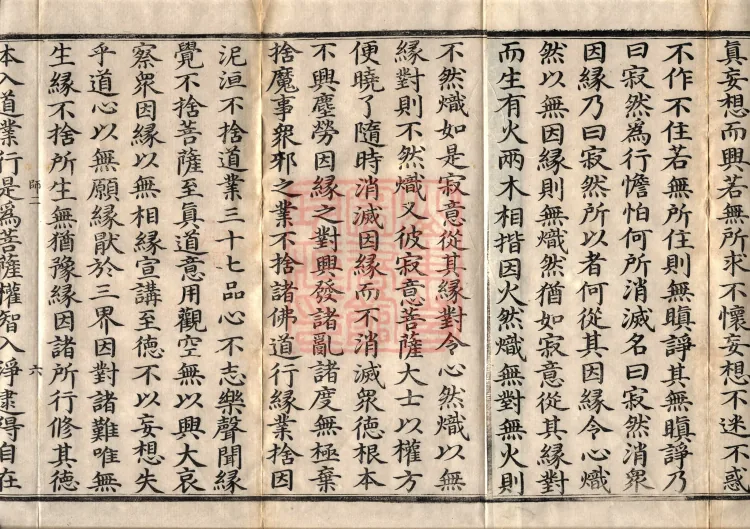 真妄想而興若無所求不懷妄想不迷不惑
不作不住若無所住則無瞋諍其無瞋諍乃
曰寂然為行憺怕何所消滅名曰寂然消衆
因緣乃曰寂然所以者何從其因緣令心熾
然以無因緣則無熾然猶如寂意從其緣對
而生有火兩木相揩因火然熾無對無火則
不然熾如是寂意從其緣對令心然熾以無
緣對則不然熾又彼寂意菩薩大士以權方
便曉了隨時消滅因緣而不消滅衆德根本
不興塵勞因緣之對興發諸亂諸度無極棄
捨魔事衆邪之業不捨諸佛道行緣業捨因
泥洹不捨道業三十七品心不志樂聲聞緣
覺不捨菩薩至真道意用觀空無以興大哀
察衆因緣以無相緣宣講至德不以妄想失
乎道心以無願緣猒於三界因對諸難唯無
生緣不捨所生無猶豫緣因諸所行修其德
師二
六
本入道業行是為菩薩權智入淨逮得自在